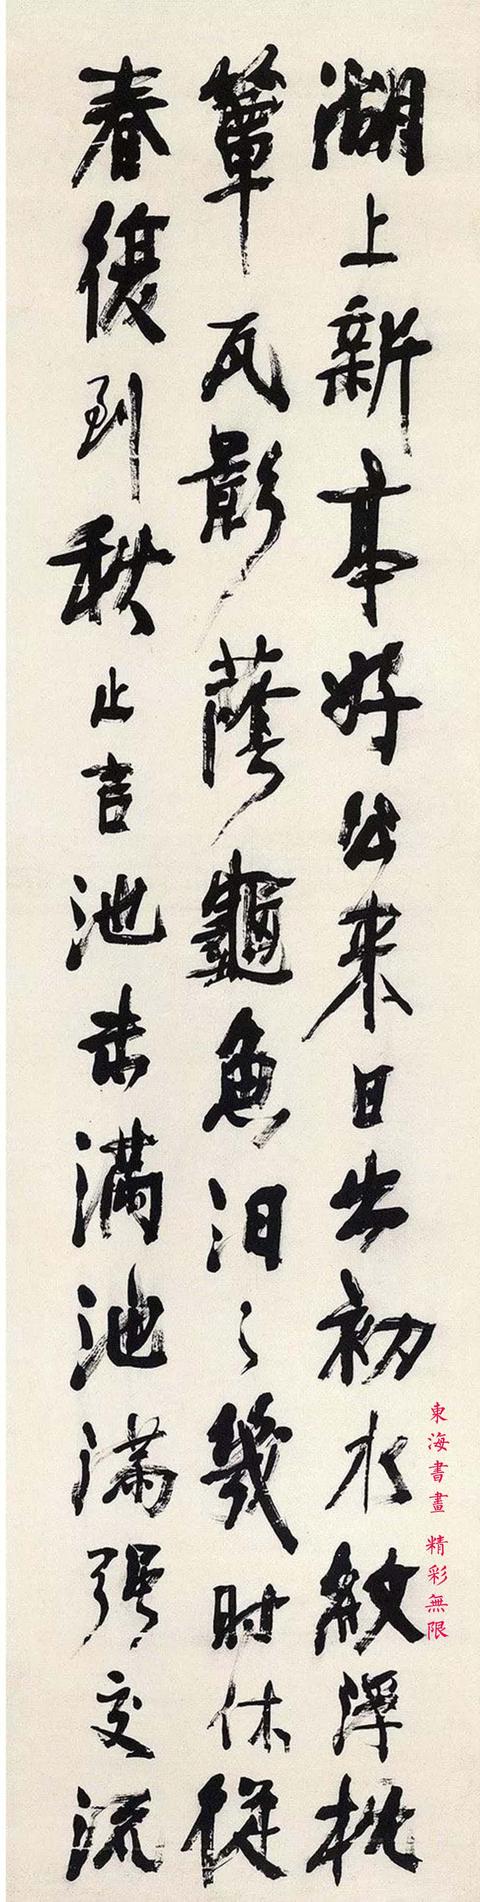 湖上新亭好公來日出初水紋浮枕
簟瓦影蔭龜魚汨々幾時休從
春復到秋止言池未滿池滿強交流
東海書畫 精彩無限